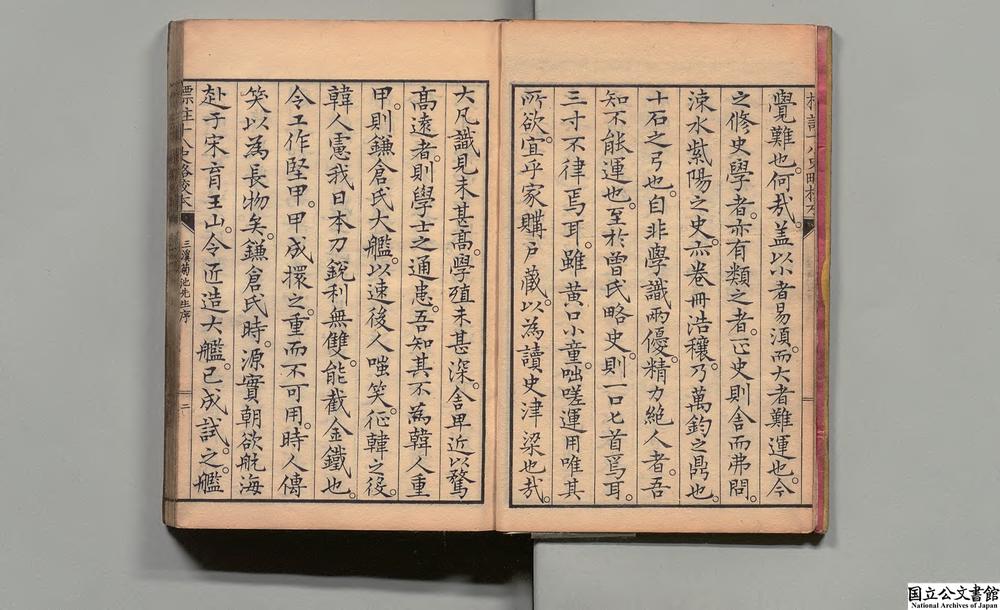 覺難也。何哉。盖以小者易湏而大者難運也。今
之修史學者。亦有類之者。正史則舍而弗問。
涑水紫陽之史。亦卷冊浩穰。乃萬鈞之鼎也。
十石之弓也。自非學識兩優。精力絶人者。吾
知不能運也。至於曾氏略史。則一口匕首焉耳。
三寸不律焉耳。雖黃口小童。咄嗟運用唯其
所欲。宜乎家購戶藏。以為讀史津梁也哉。
大凡識見未甚髙。學殖未甚深。舍卑近以騖
髙遠者。則學士之通患。吾知其不為韓人重
甲。則鎌倉氏大艦。以速後人嗤笑。征韓之役。
韓人憲我日本刀銳利無雙。能截金鐵也。
令工作堅甲。甲成擐之。重而不可用。時人傳
笑以為長物矣。鎌倉氏時。源實朝欲航海
赴于宋育王山。令匠造大艦。已成試之。艦
標註十八史略校本
三溪菊池先生序
二
国立公文書館
National Archives of Japan